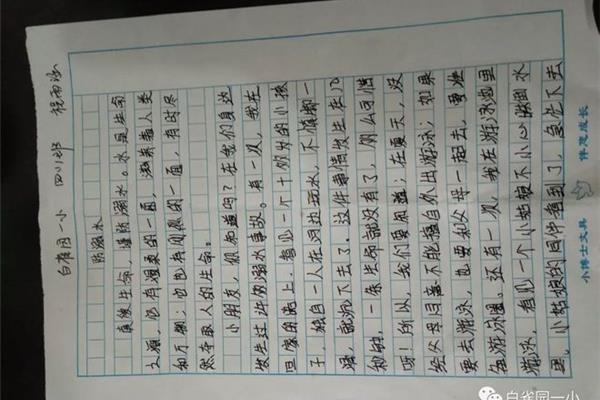 白雀园一小 四(1)班 程雨涵
防溺水
真爱生命，谨防溺水。水是生命
之源，它有温柔的一面，滋养着人类
和万物；也它有凶狠的一面，有时尽
然夺取人的生命。
小朋友，你知道吗？在我们身边
发生过许多溺水事故。有一次，我在
回家的路上，看见一个十几岁的小孩
子，独自一人在河边玩水，不慎脚一
滑，就沉下去了。这件事情发生在几
秒钟，一条生命就没有了，何么可惜
呀！所以，我们要知道：在夏天，没
经父母同意不能擅自外出游泳；如果
要去游泳，也要和父母一起去，更准
备游泳圈。还有一次，我在游泳池里
游泳，看见一个小姑娘不小心溺到水
里，小姑娘的同伴看到了，急忙下去
小博士文具 伴您成长
白雀园一小